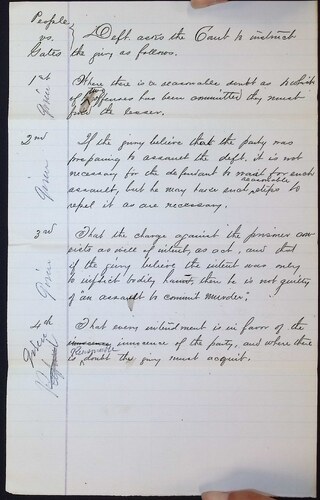 People
vs.
Gates
Deft. asks the Court to instruct
the jury as follows.
1st
Given
Where there is a reasonable doubt as to which
of the offenses has been committed they must
find the lesser.
2nd
Given
If the jury believe that the party was
preparing to assault the deft. it is not
necessary for the defendant to wait for such
assault, but he may take such reasonable steps to
repel it as are necessary.
3rd
Given
That the charge against the prisoner con
sists as well of intent, as act, and that
if the jury believe the intent was only
to inflict bodily harm, then he is not guilty
of an assault to commit murder;
4th
That every intendment is in favor of the
innocence of the party, and where there
is Reasonable doubt the jury must acquit.